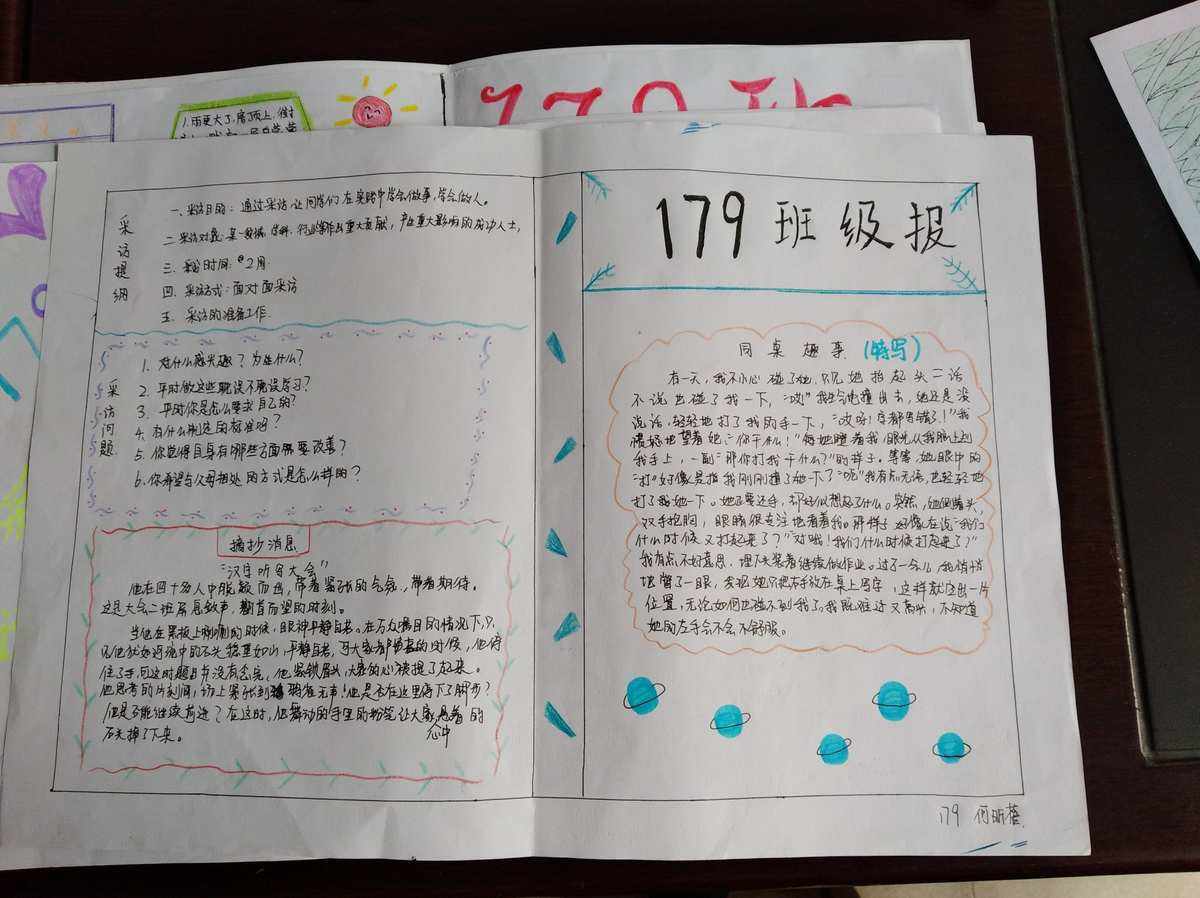 1.雨更大了,房顶上,街
179班
采访提纲
一、采访目的:通过采访让同学们在实践中学会做事,学会做人。
二、采访对象:某一领域、学科、行业等作出重大贡献,产生重大影响的成功人士,
三、采访时间:2月
四、采访方式:面对面采访
五、采访的准备工作
采访问题
1. 对什么感兴趣?为什么?
2. 平时做这些耽误不耽误学习?
3. 平时你是怎么要求自己的?
4. 有什么制造的标准吗?
5. 你觉得自身有哪些方面需要改善?
6. 你希望与父母相处的方式是怎么样的?
摘抄消息
“汉字听写大会”
他在四十多人中脱颖而出,带着紧张的气氛,带着期待。
这是大会二班屏息敛声,翘首而望的时刻。
当他在黑板上唰唰的时候,眼神平静自若。在万众瞩目的情况下,只
见他犹如河流中的石头稳重如山,平静自若,可大家都带着的时候,他停
住了手,可这时题目并没有念完,他紧锁眉头,大家的心被提了起来。
他思考的片刻间,访上紧张到鸦雀无声!他是否在这里停下了脚步?
他是否能继续前进?在这时,他舞动的手里的粉笔让大家悬着的
心中
石头掉了下来。
179 班级报
同桌趣事(特写)
有一天,我不小心碰了她,只见她抬起头二话
不说也碰了我一下,“哎”我生气地撞出去,她还是没
说话,轻轻地打了我的手一下,“哎呀!字都写错了!”我
愤怒地望着她,“你干什么!”她瞪着我,眼光从我脸上到
我手上,一副“那你打我干什么?”的样子。等等,她眼中的
“打”好像是指我刚刚撞了她一下?“呃”我有点无语,也轻轻地
打了我她一下。她正要还手,却好似想起了什么。突然,她侧着头,
双手抱胸,眼睛很专注地看着我。那样子好像在说“我们
什么时候又打起来了?”“对哦!我们什么时候打起来了?”
我有点不好意思,埋下头装着继续做作业。过了一会儿,我悄悄
地瞥了一眼,发现她只把右手放在桌上写字,这样就空出一片
位置,无论如何也碰不到我了,我既难过又高兴,不知道
她的左手会不会不舒服。
179 何昕蓓